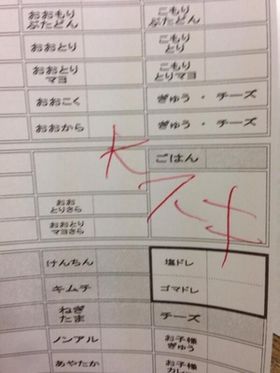 おおもり ぶたどん
こもり ぶたどん
おおとり
こもり とり
おおとり マヨ
こもり とりマヨ
おおこく
ぎゅう・チーズ
おおから
ぎゅう・チーズ
ごはん
大スキ
おお とりさら
おおとり マヨさら
けんちん
塩ドレ
キムチ
ゴマドレ
ねぎ たま
チーズ
ノンアル
お子様 ぎゅう
あやたか
お子様 カレ